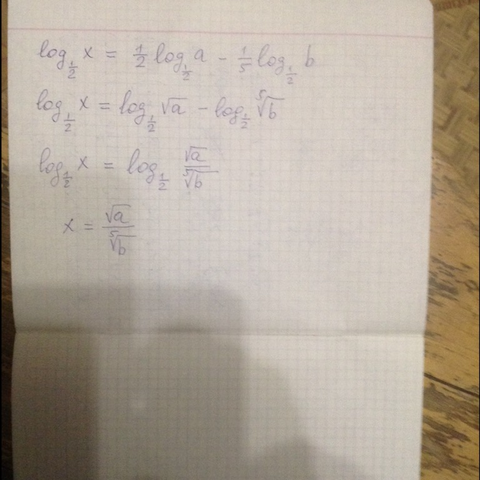 log_{1/2} x = 1/2 log_{1/2} a - 1/5 log_{1/2} b
log_{1/2} x = log_{1/2} √a - log_{1/2} ⁵√b
log_{1/2} x = log_{1/2} √a/⁵√b
x = √a/⁵√b